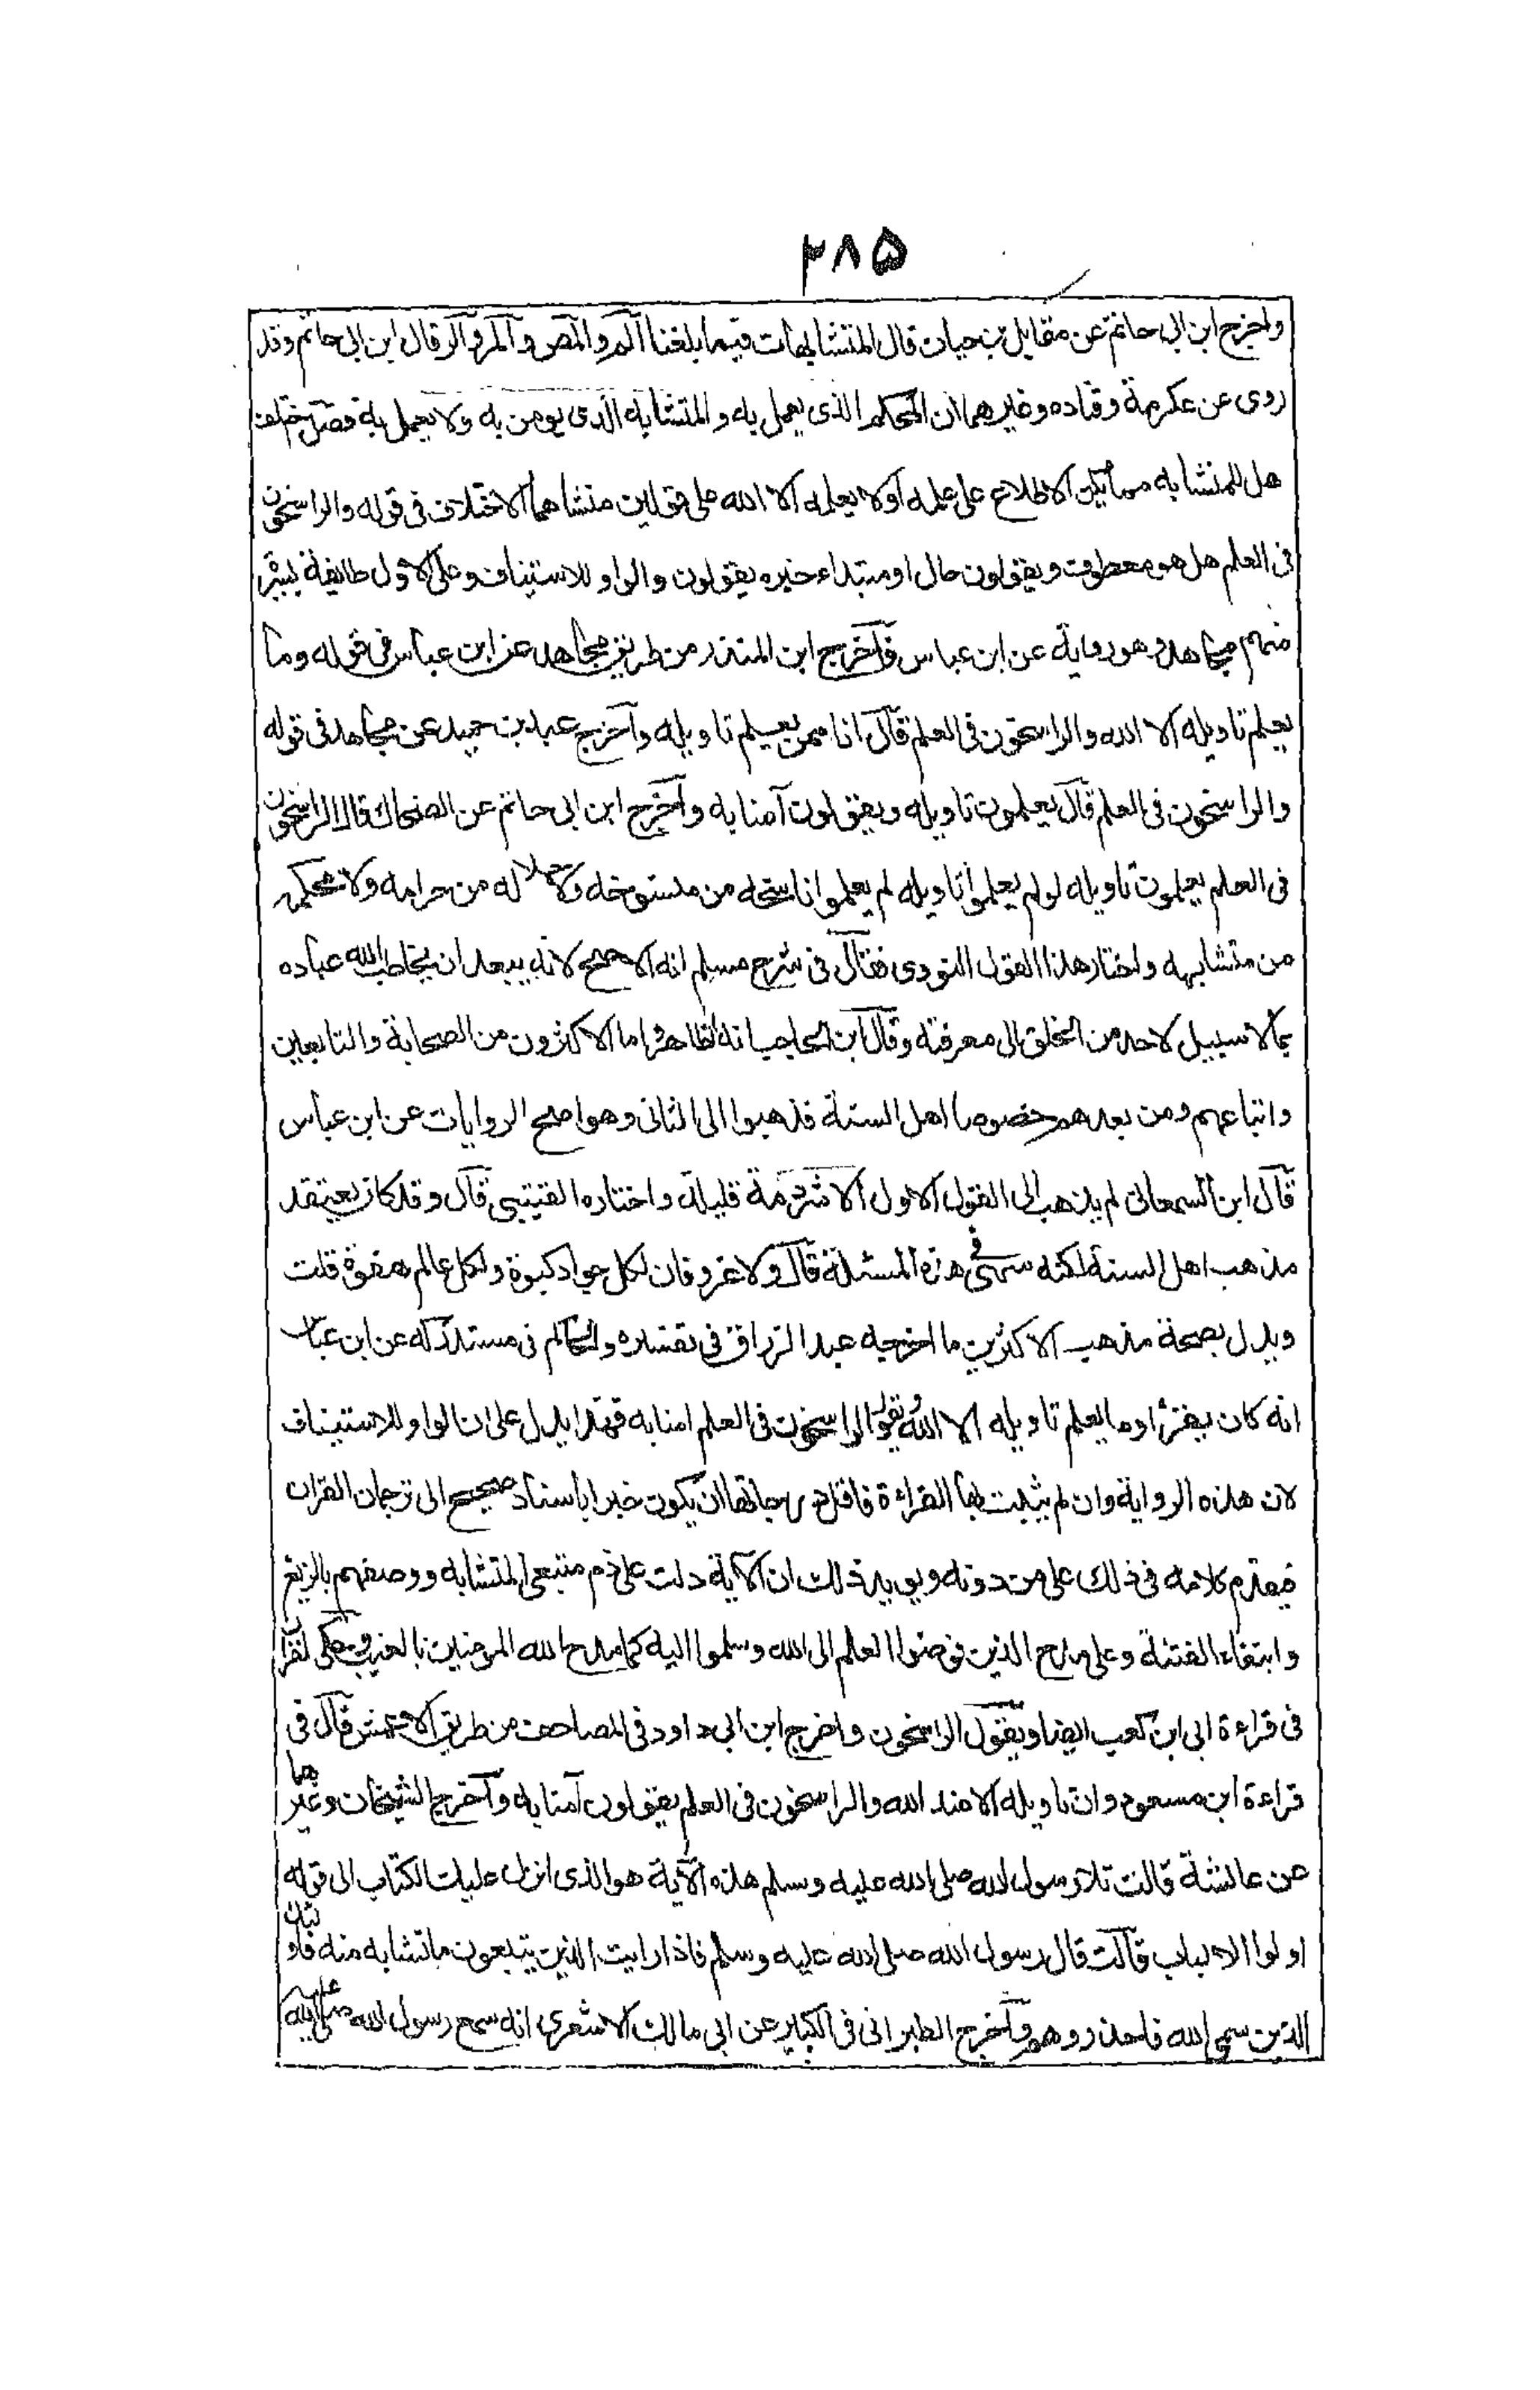 ۲۸۵
واخرج ابن ابى حاتم عن مقاتل بن حيان قال المتشابهات فيما بلغنا آلم والمص وآلمر وآلر قال ابن ابى حاتم وقد
روى عن عكرمة وقتاده وغيرهما ان المحكم الذى يعمل به والمتشابه الذى يومن به ولا يعمل به فصل اختلف
هل المتشابه مما يمكن الاطلاع على علمه اولا يعلمه الا الله على قولين منشاهما الاختلاف فى قوله والراسخون
فى العلم هل هو معطوف ويقولون حال او مبتداء خبره يقولون والواو للاستيناف وعلى الاول طايفة يسيرة
منهم مجاهد وهو رواية عن ابن عباس فآخرج ابن المنذر من طريق مجاهد عن ابن عباس فى قوله وما
يعلم تاويله الا الله والراسخون فى العلم قال انا ممن يعلم تاويله وآخرج عبد بن حميد عن مجاهد فى قوله
والراسخون فى العلم قال يعلمون تاويله ويقولون آمنا به وآخرج ابن ابى حاتم عن الضحاك قال الراسخون
فى العلم يعلمون تاويله لو لم يعلموا تاويله لم يعلموا ناسخه من منسوخه ولا حلاله من حرامه ولا محكمه
من متشابهه واختار هذا القول النووى فقال فى شرح مسلم انه الاصح لانه يبعد ان يخاطب الله عباده
بما لا سبيل لاحد من الخلق الى معرفته وقال ابن الحاجب انه الظاهر اما الاكثرون من الصحابة والتابعين
واتباعهم ومن بعدهم خصوصا اهل السنة فذهبوا الى الثانى وهو اصح الروايات عن ابن عباس
قال ابن السمعانى لم يذهب الى القول الاول الا شرذمة قليلة واختاره القتيبى قال وقد كان يعتقد
مذهب اهل السنة لكنه سهى فى هذه المسئلة قال ولا غرو فان لكل جواد كبوة ولكل عالم هفوة قلت
ويدل بصحة مذهب الاكثرين ما اخرجه عبد الرزاق فى تفسيره والحاكم فى مستدركه عن ابن عباس
انه كان يقرأ وما يعلم تاويله الا الله ويقول الراسخون فى العلم امنا به فهذا يدل على ان الواو للاستيناف
لان هذه الرواية وان لم يثبت بها القراءة فاقل درجاتها ان يكون خبرا باسناد صحيح الى ترجمان القران
فيقدم كلامه فى ذلك على من دونه ويويد ذلك ان الآية دلت على ذم متبعى المتشابه ووصفهم بالزيغ
وابتغاء الفتنة وعلى مدح الذين فوضوا العلم الى الله وسلموا اليه كما مدح الله المومنين بالغيب وحكى الفرا ان
فى قراءة ابى ابن كعب ايضا ويقول الراسخون واخرج ابن ابى داود فى المصاحف من طريق الاعمش قال فى
قراءة ابن مسعود وان تاويله الا عند الله والراسخون فى العلم يقولون آمنا به وآخرج الشيخان وغيرهما
عن عائشة قالت تلا رسول الله صلى الله عليه وسلم هذه الآية هو الذى انزل عليك الكتاب الى قوله
اولوا الالباب قالت قال رسول الله صلى الله عليه وسلم فاذا رايت الذين يتبعون ما تشابه منه فاولئك
الذين سمى الله فاحذروهم وآخرج الطبرانى فى الكبير عن ابى مالك الاشعرى انه سمع رسول الله صلى الله عليه